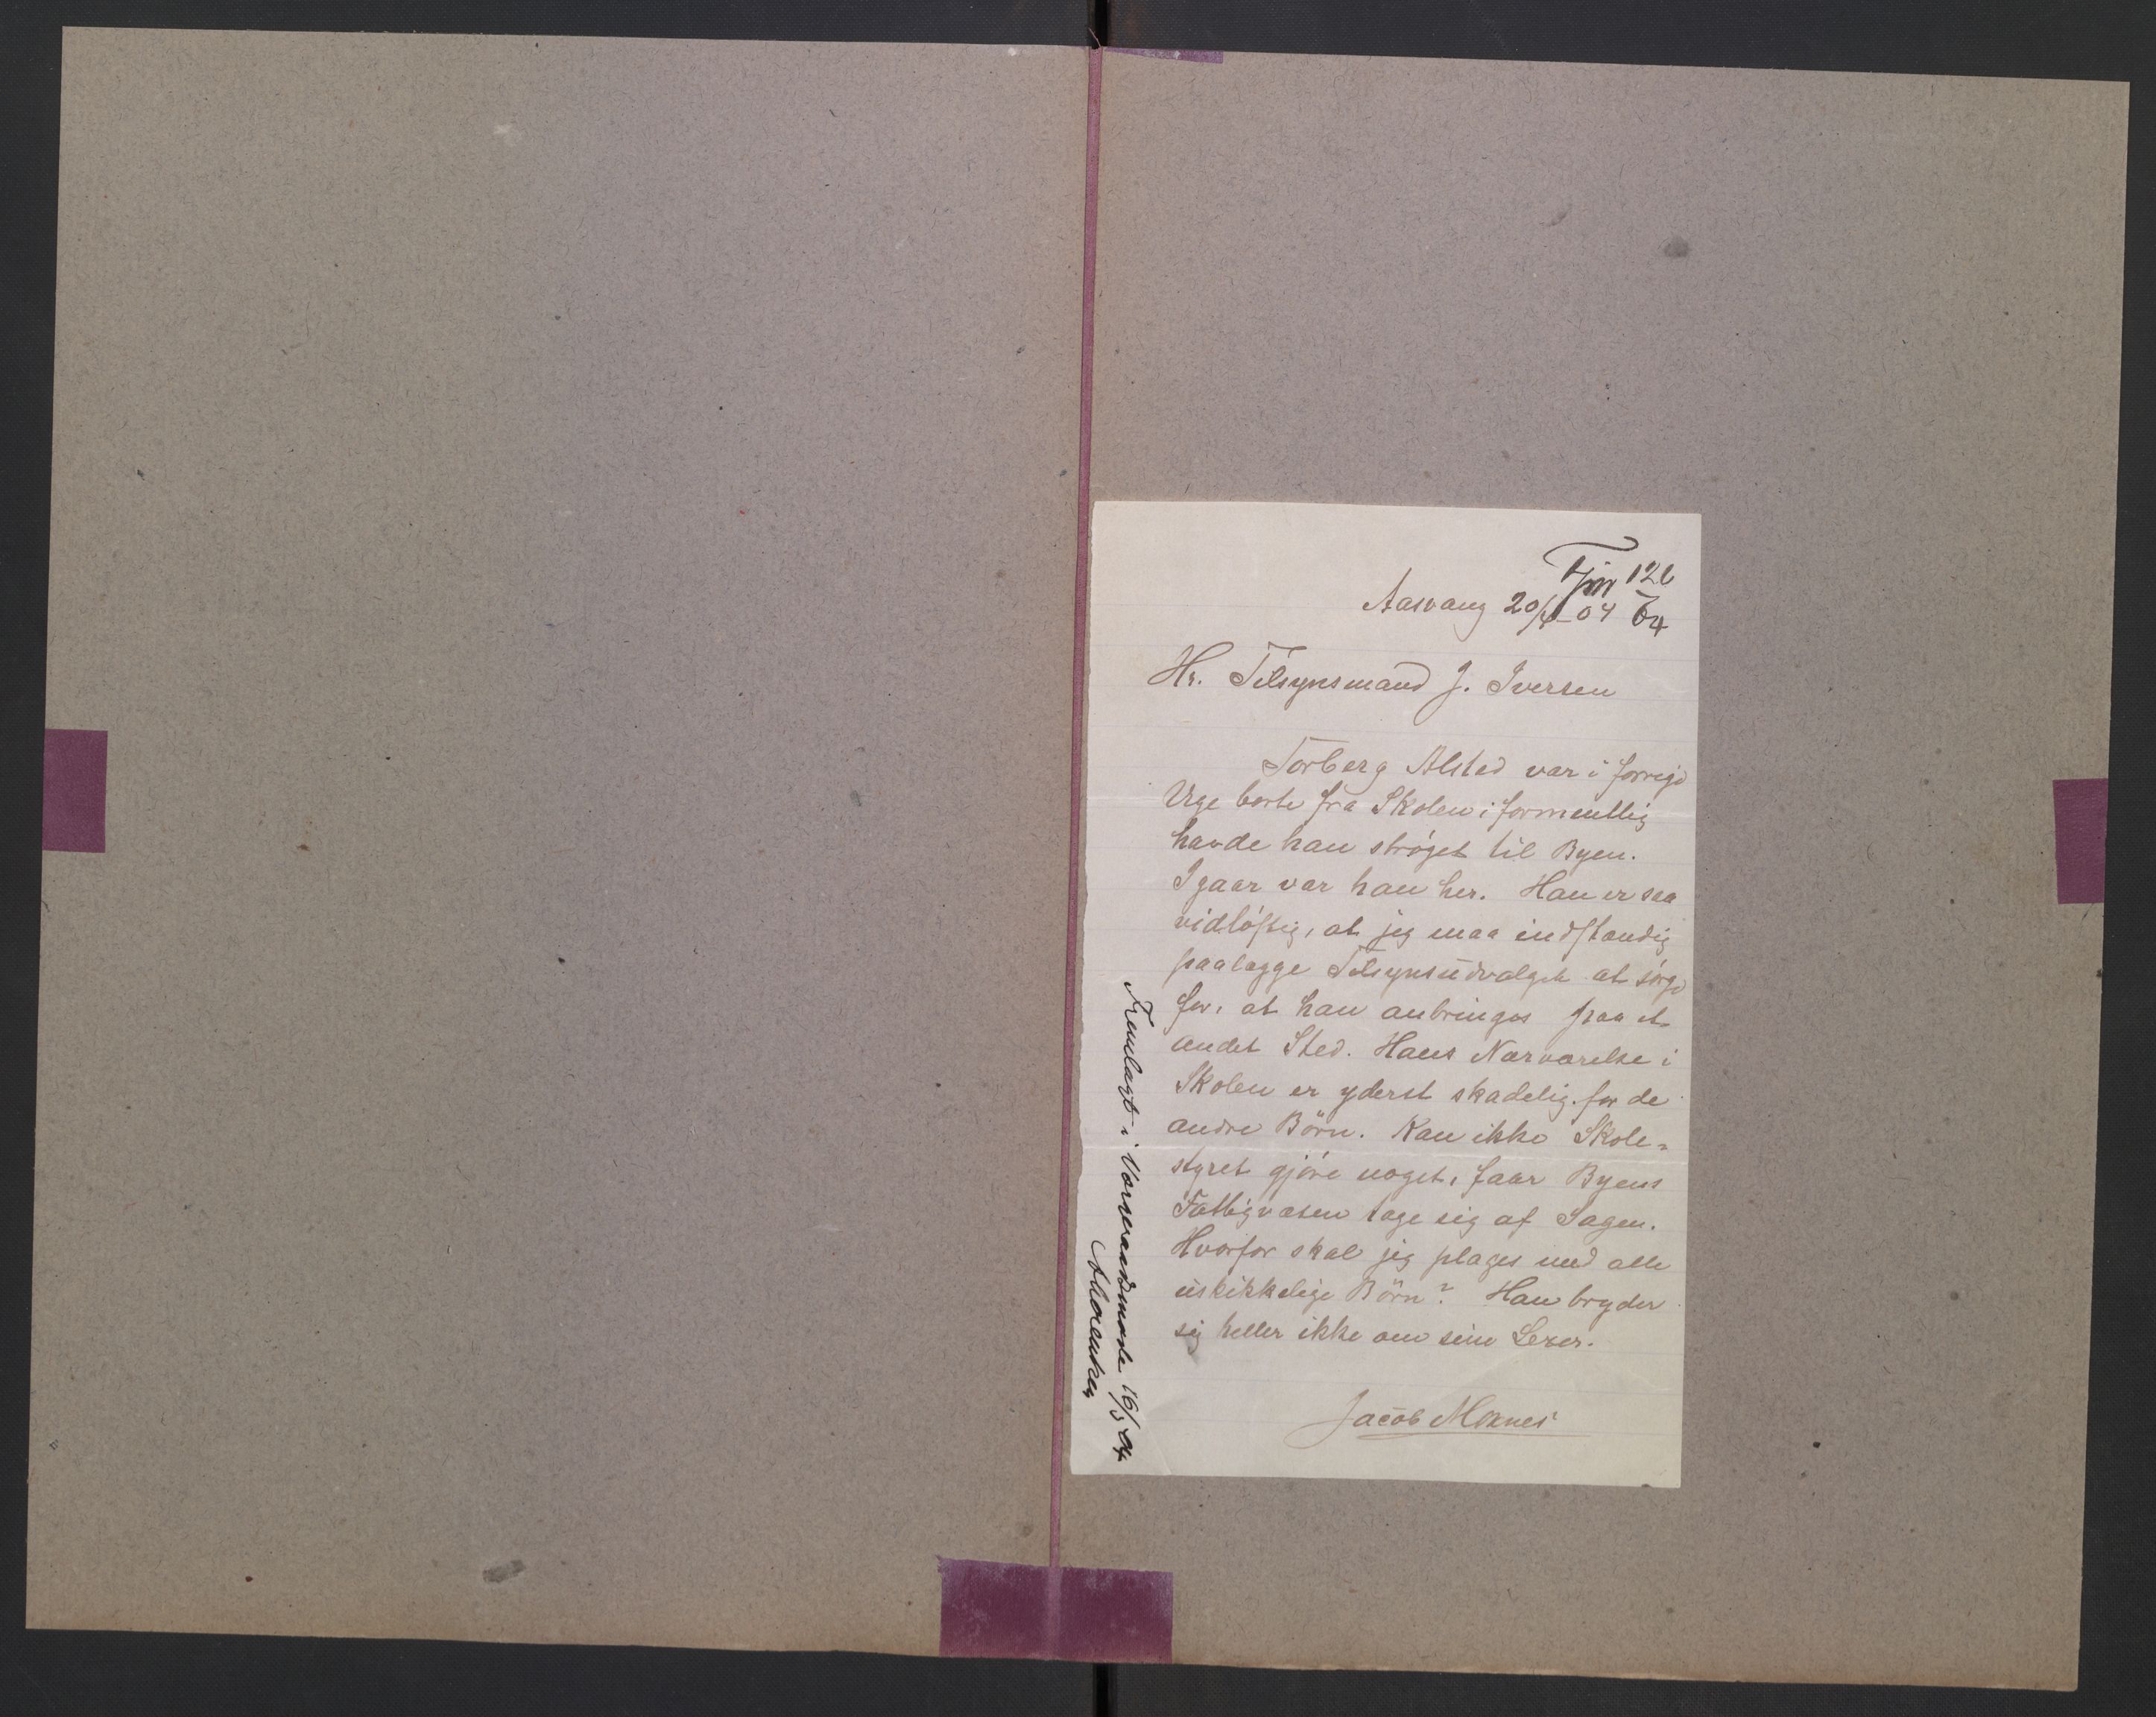 126
Aasvang 20/4-04 04
Hr. Tilsynsmand J. Iversen
Torberg Alsted var i forrige
Uge borte fra Skolen; formentlig
havde han strøget til Byen.
Igaar var han her. Han er saa
vidløftig, at jeg maa indstændig
paalægge Tilsynsudvalget at sørge
for, at han anbringes paa et
andet Sted. Hans Nærværelse i
Skolen er yderst skadelig for de
andre Børn. Kan ikke Skole-
styret gjøre noget, faar Byens
Fattigvæsen tage sig af Sagen.
Hvorfor skal jeg plages med alle
uskikkelige Børn? Han bryder
sig heller ikke om sine Lexer.
Jacob Moxnes
Fremlagt i Værgeraadsmøde 16/5 04